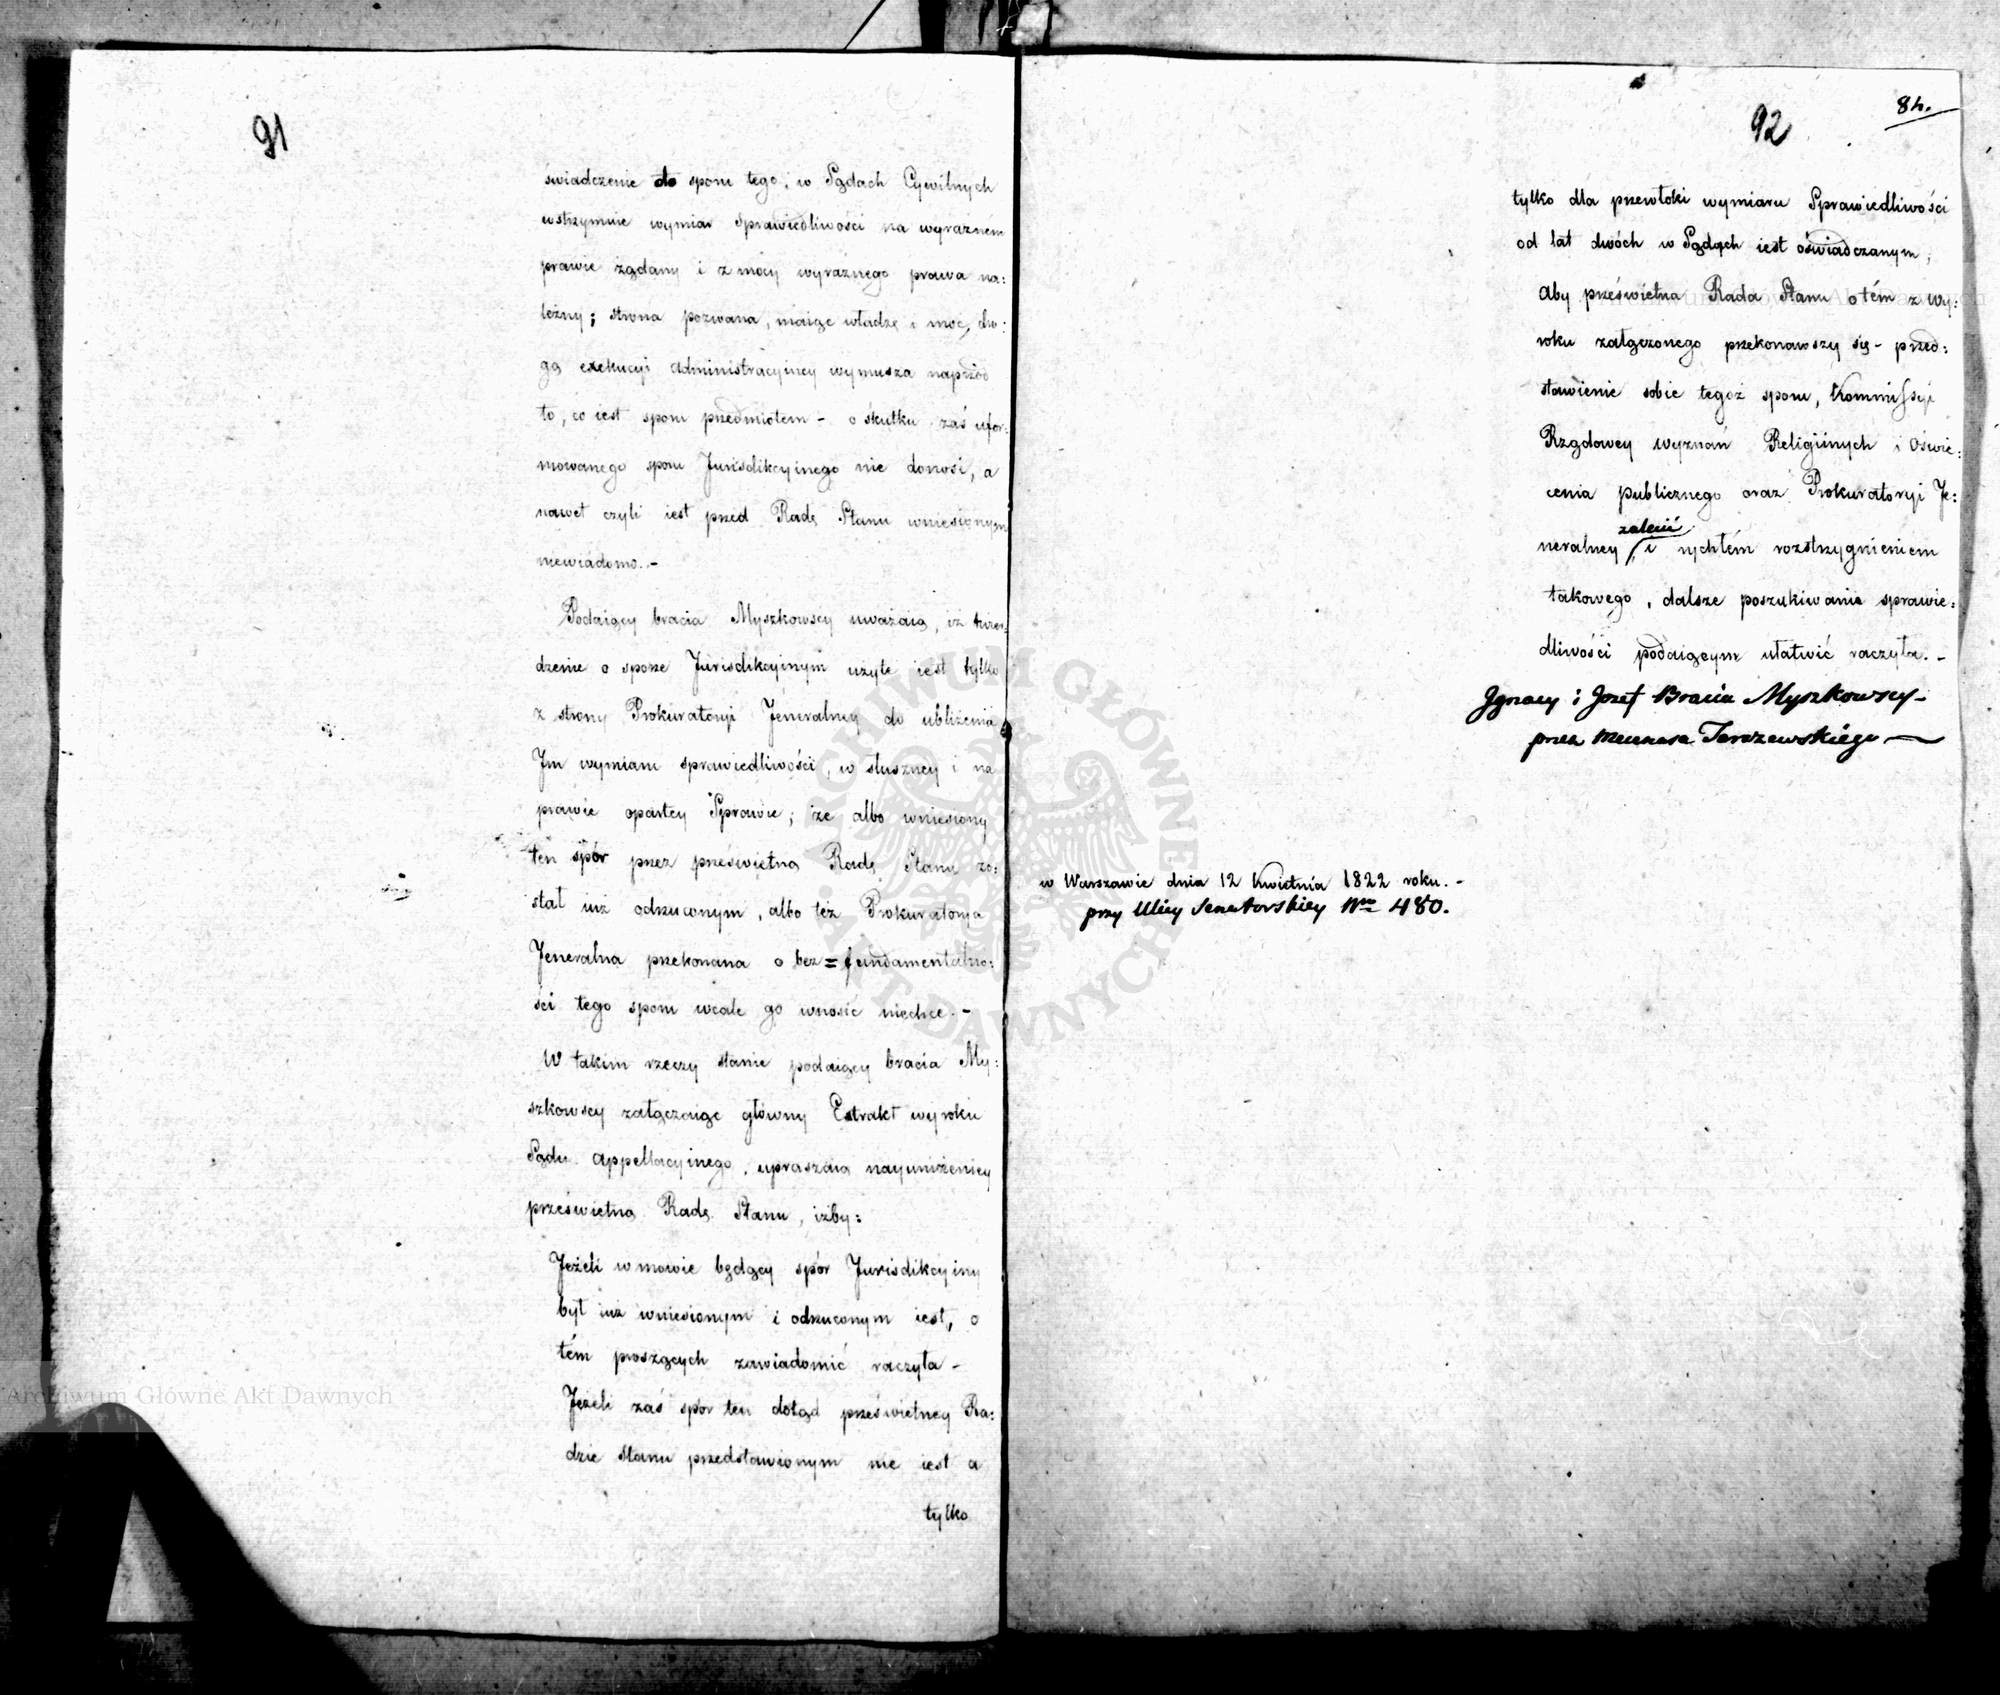 91
świadczenie do sporu tego, w Sądach Cywilnych
wstrzymuie wymiar Sprawiedliwości na wyraźnem
prawie żądany i z mocy wyraźnego prawa na:
leżny; strona pozwana, maiąc władzę i moc, dro:
gą exekucyi administracyiney wymusza naprzód
to, co iest sporu przedmiotem - o skutku zaś ufor:
mowanego sporu Jurisdikcyinego nie donosi, a
nawet czyli iest przed Radę Stanu wniesionym
niewiadomo. -
Podaiący bracia Myszkowscy uważaią, iż twier:
dzenie o sporze Jurisdikcyinym użyte iest tylko
z strony Prokuratoryi Jeneralney do ubliżenia
Im wymiaru sprawiedliwości, w słuszney i na
prawie opartey Sprawie; że albo wniesiony
ten spór przez prześwietną Radę Stanu zo:
stał iuż odrzuconym, albo też Prokuratorya
Jeneralna przekonana o bez=fundamentalno:
ści tego sporu wcale go wnosić niechce. -
W takim rzeczy stanie podaiący bracia My:
szkowscy załączaiąc główny Extrakt wyroku
Sądu Appellacyinego, upraszaią nayuniżeniey
prześwietną Radę Stanu, iżby:
Jeżeli w mowie będący spór Jurisdikcyiny
był iuż wniesionym i odrzuconym iest, o
tém proszących zawiadomić raczyła -
Jeżeli zaś spór ten dotąd prześwietney Ra:
dzie Stanu przedstawionym nie iest a
tylko
84.
92
tylko dla przewłoki wymiaru Sprawiedliwości
od lat dwóch w Sądach iest oświadczanym,
aby prześwietna Rada Stanu o tém z wy:
roku załączonego przekonawszy się - przed:
stawienie sobie tegoż sporu, Kommissyi
Rządowey wyznań Religiinych i Oświe:
cenia publicznego oraz Prokuratoryi Je:
zalecić
neralney, i rychłém rozstrzygnieniem
takowego, dalsze poszukiwanie sprawie:
dliwości podaiącym ułatwić raczyła. -
Ignacy i Józef Bracia Myszkowscy -
przez Mecenasa Tarczewskiego
w Warszawie dnia 12 Kwietnia 1822 roku. -
przy Ulicy Senatorskiey Nro 480.
ARCHIWUM GŁÓWNE AKT DAWNYCH
Archiwum Główne Akt Dawnych